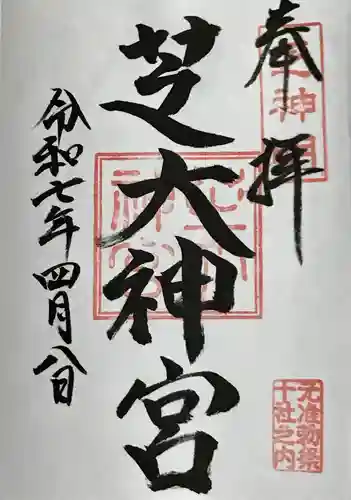 奉拝
芝大神宮
令和七年四月八日
元准勅祭
十社之内